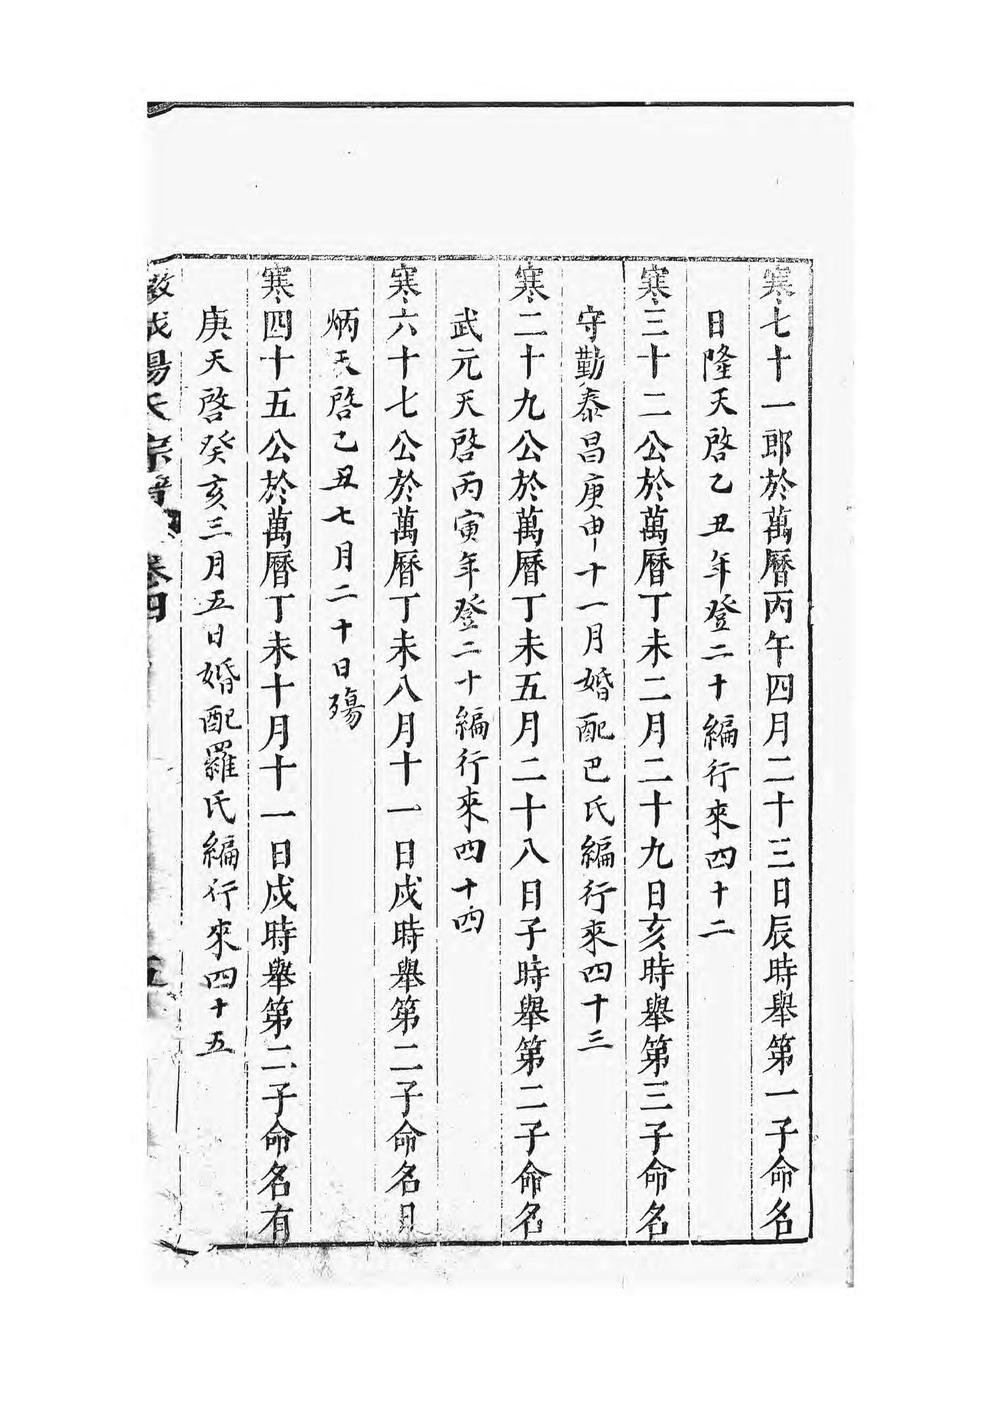 寒七十一郎於萬曆丙午四月二十三日辰時舉第一子命名
日隆天啓乙丑年登二十編行來四十二
寒三十二公於萬曆丁未二月二十九日亥時舉第三子命名
守勤泰昌庚申十一月婚配巴氏編行來四十三
寒二十九公於萬曆丁未五月二十八日子時舉第二子命名
武元天啓丙寅年登二十編行來四十四
寒六十七公於萬曆丁未八月十一日戌時舉第二子命名日
炳天啓乙丑七月二十日殤
寒四十五公於萬曆丁未十月十一日戌時舉第二子命名有
庚天啓癸亥三月五日婚配羅氏編行來四十五
宗譜 卷四 五